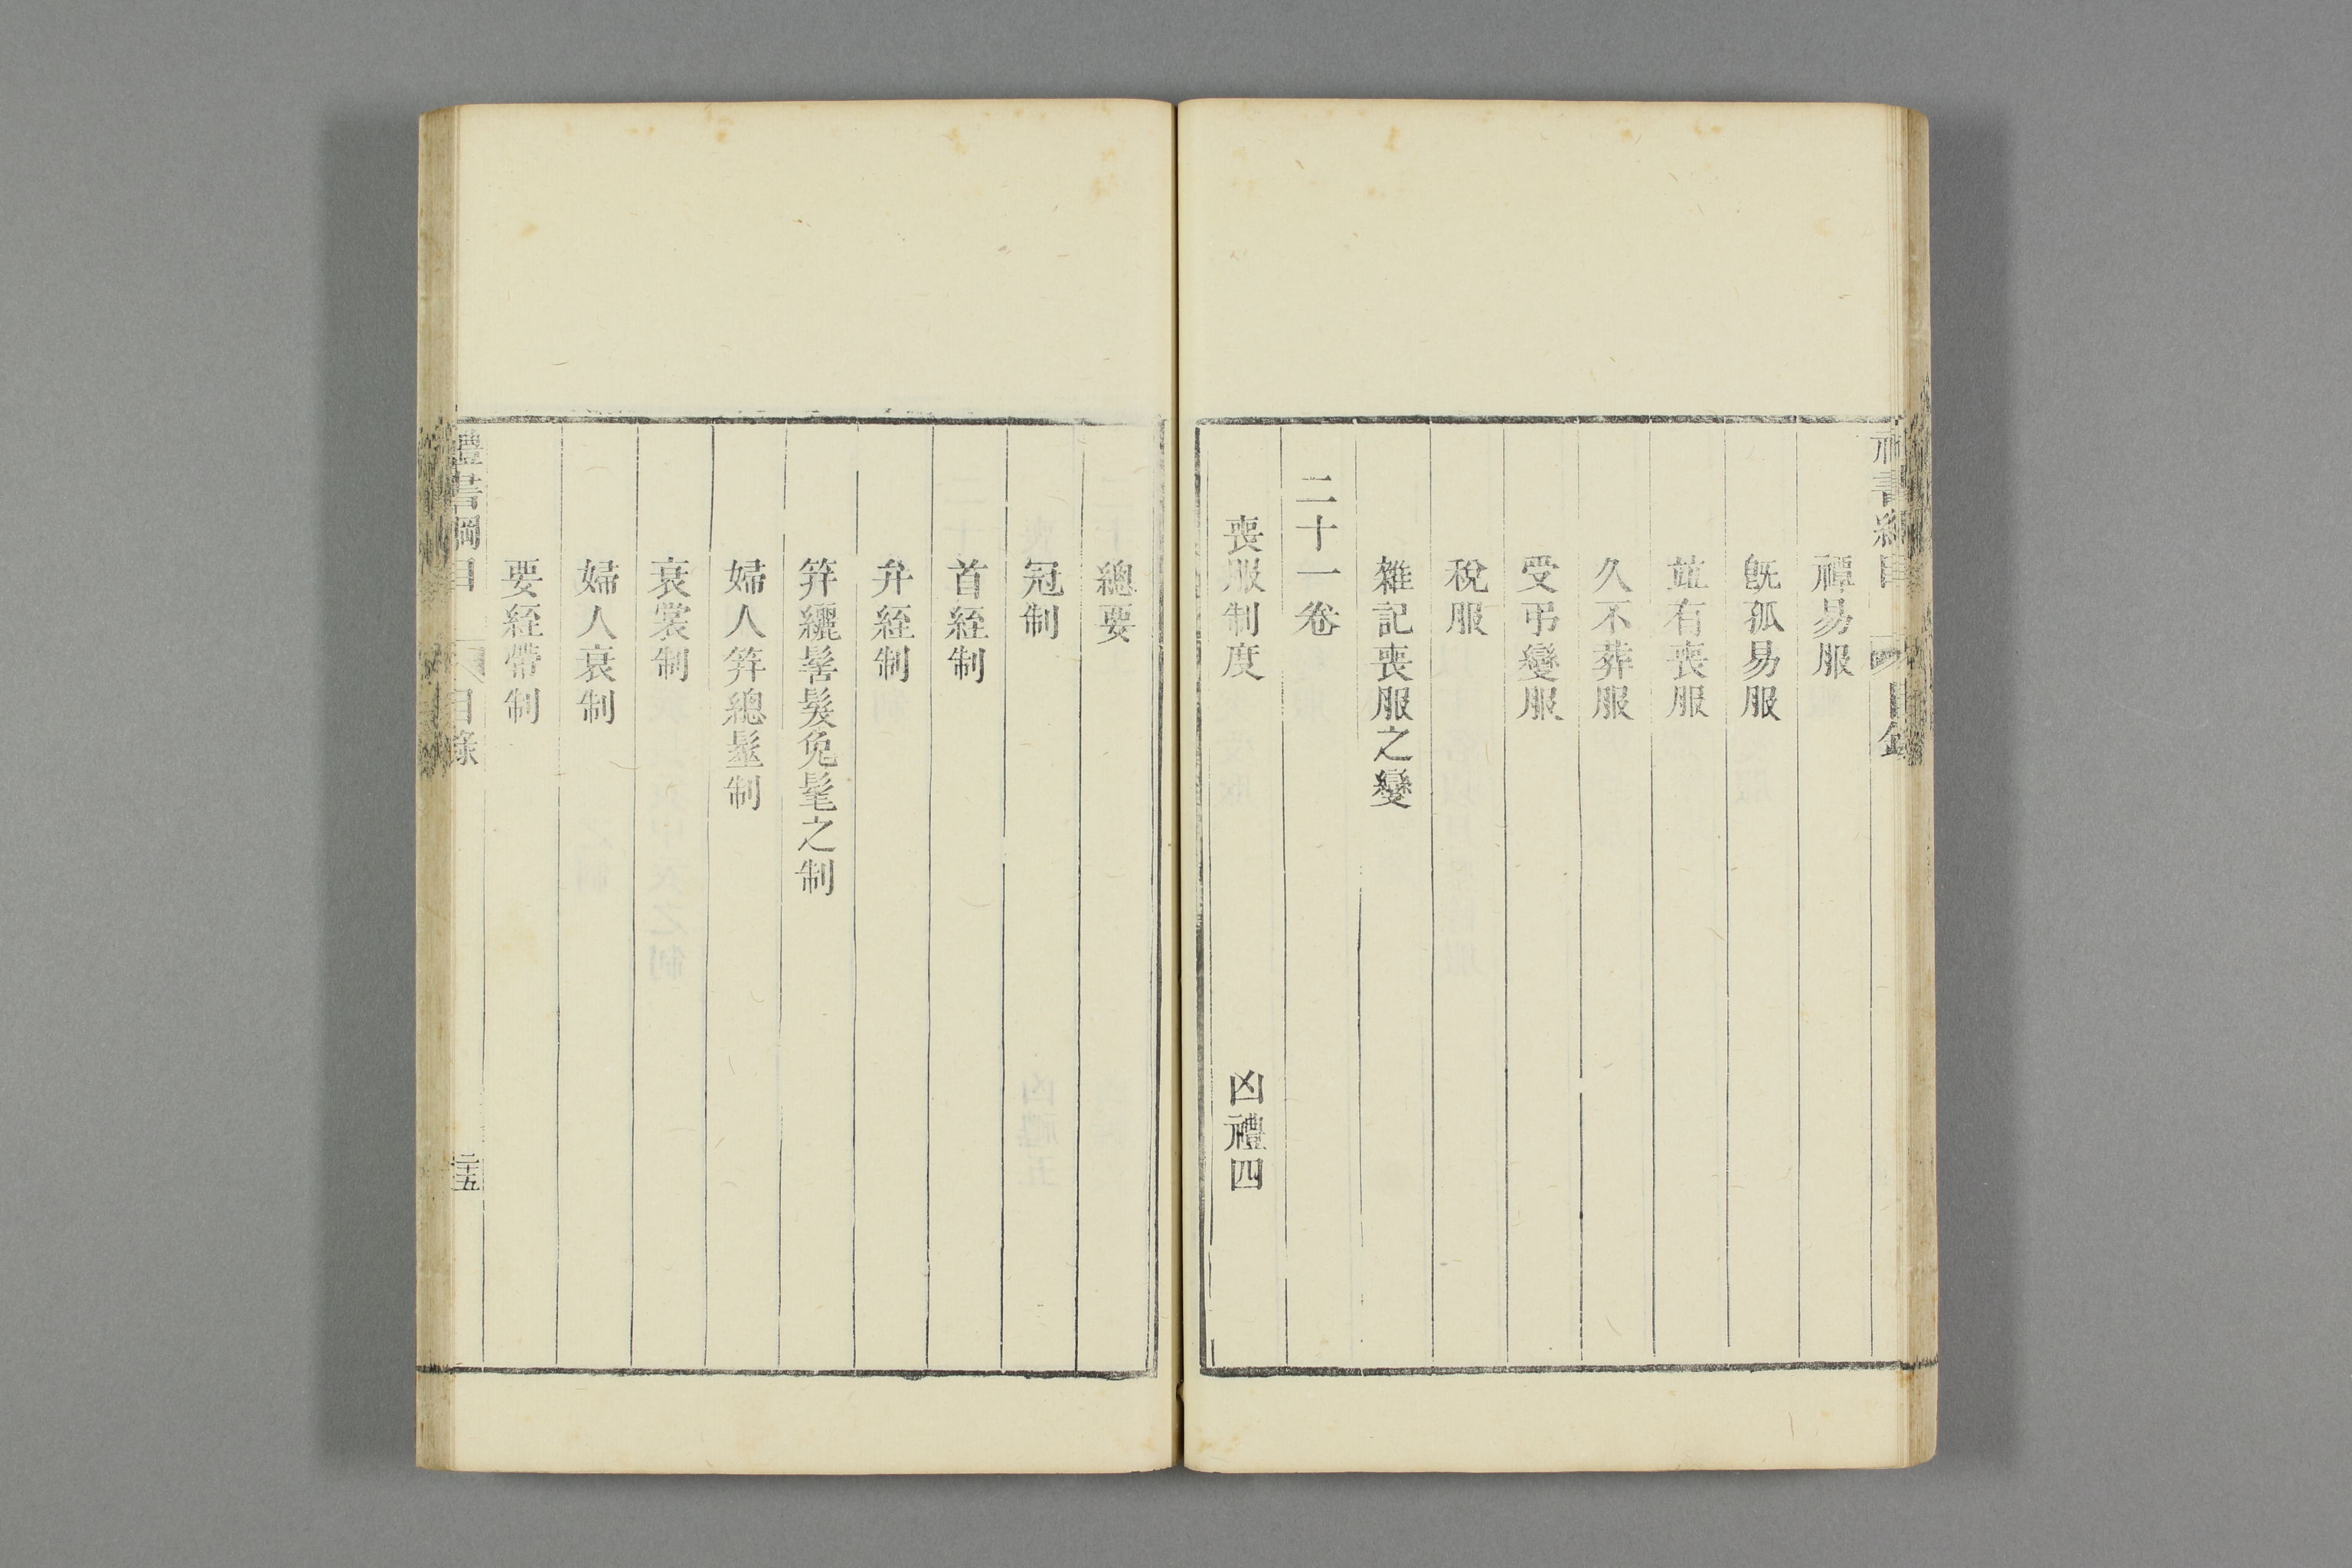 禫易服
旣孤易服
並有喪服
久不葬服
受弔變服
稅服
雜記喪服之變
二十一卷
喪服制度 凶禮四
總要
冠制
首絰制
弁絰制
笄纚髺髮免髦之制
婦人笄總髽制
衰裳制
婦人衰制
要絰帶制
禮書綱目 目錄